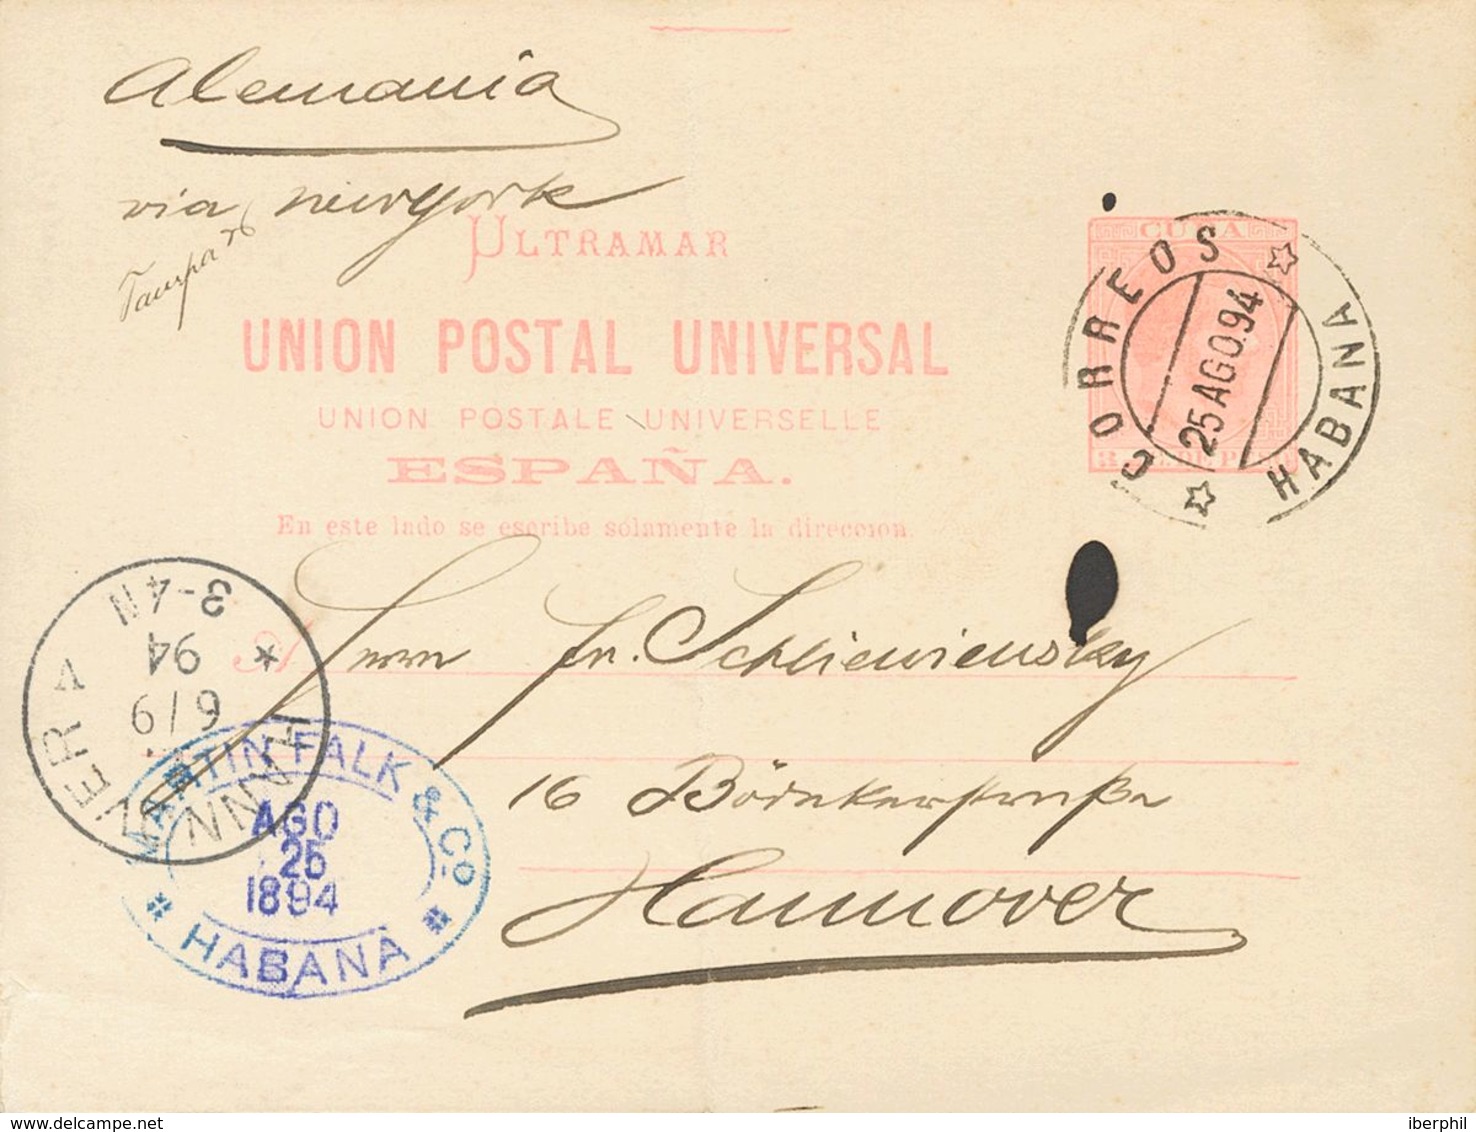 Alemania
via Newyork
Tampa 26
ULTRAMAR
CUBA
CORREOS
25 AGO.94
HABANA
UNION POSTAL UNIVERSAL
UNION POSTALE UNIVERSELLE
ESPAÑA.
En este lado se escribe solamente la direccion.
3 C. DE PESO
A Herrn Fr. Schliewiensky
16 Bödekerstraße
Hannover
HANNOVER
6/9
94
3-4N
MARTIN FALK & Co
AGO
25
1894
HABANA
delcampe.net
iberphil